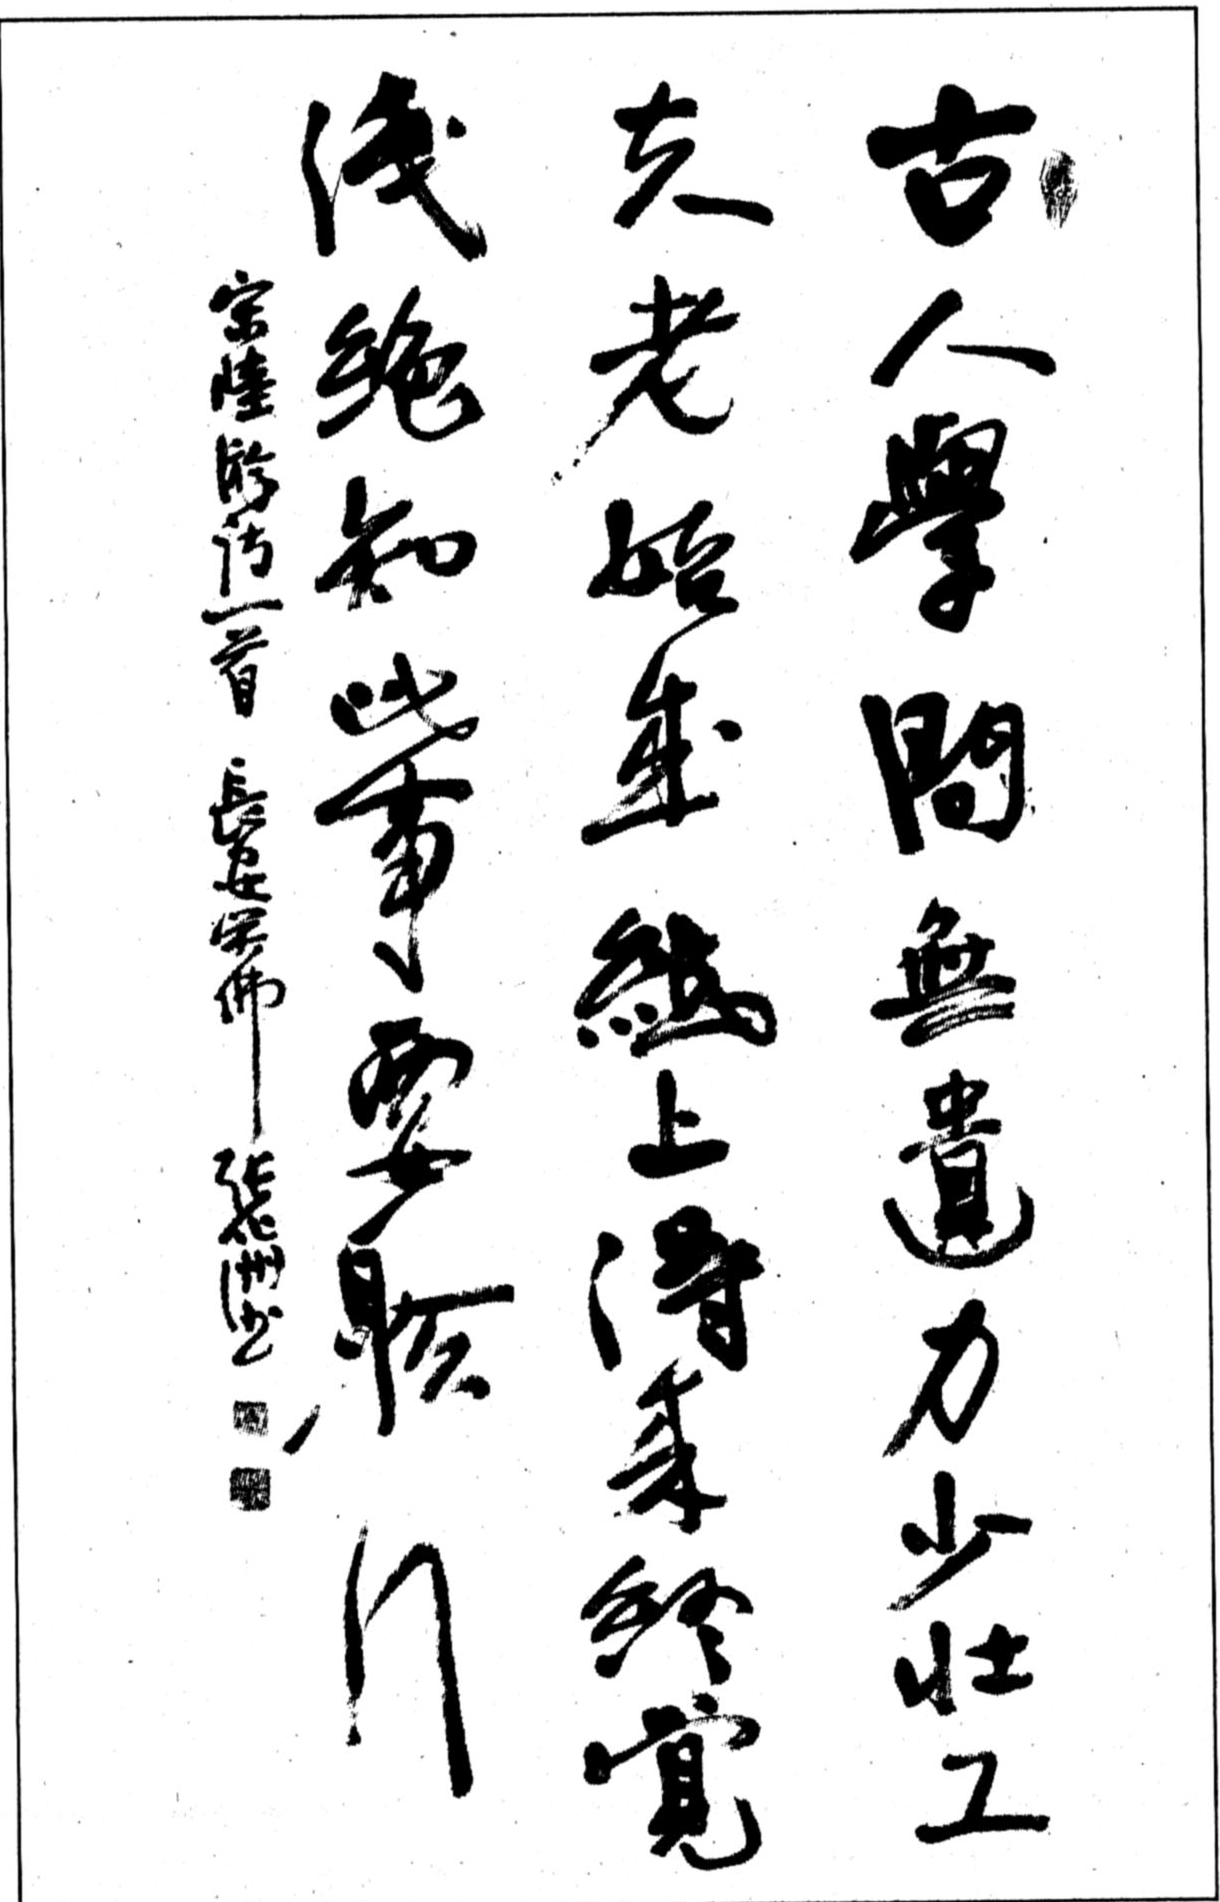 古人學問無遺力少壯工
夫老始成紙上得来終覺
淺絕知此事要躬行
宋陸游詩一首 長安 佛 張 洲書